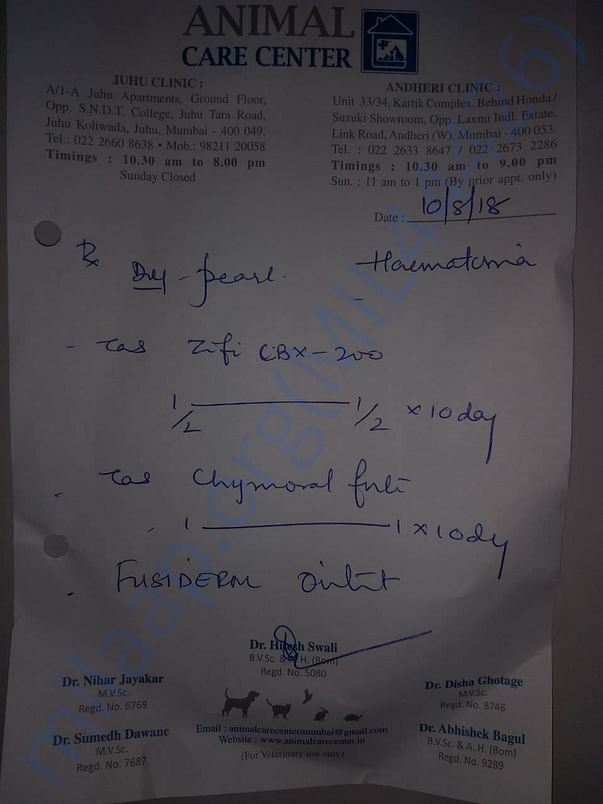 ANIMAL
CARE CENTER
JUHU CLINIC :
A/1-A Juhu Apartments, Ground Floor,
Opp. S.N.D.T. College, Juhu Tara Road,
Juhu Koliwada, Juhu, Mumbai - 400 049.
Tel.: 022 2660 8638 • Mob.: 98211 20058
Timings : 10.30 am to 8.00 pm
Sunday Closed
ANDHERI CLINIC :
Unit 33/34, Kartik Complex, Behind Honda /
Suzuki Showroom, Opp. Laxmi Indl. Estate,
Link Road, Andheri (W), Mumbai - 400 053.
Tel. : 022 2633 8647 / 022 2673 2286
Timings : 10.30 am to 9.00 pm
Sun. : 11 am to 1 pm (By prior appt. only)
Date : 10/8/18
Rx
- pearl. Haematoma
- Tab Zifi CBX-200
1/2 1/2 × 10 day
- Tab Chymoral forte
1 1 × 10 dy
- FUSIDERM Ointt
Dr. Hitesh Swali
B.V.Sc. & A. H. (Bom)
Regd. No. 5080
Dr. Nihar Jayakar
M.V.Sc.
Regd. No. 6769
Dr. Disha Ghotage
M.V.Sc.
Regd. No. 8746
Dr. Sumedh Dawane
M.V.Sc.
Regd. No. 7687
Email : animalcarecentermumbai@gmail.com
Website : www.animalcarecenter.in
(For Veterinary use only)
Dr. Abhishek Bagul
B.V.Sc. & A. H. (Bom)
Regd. No. 9289